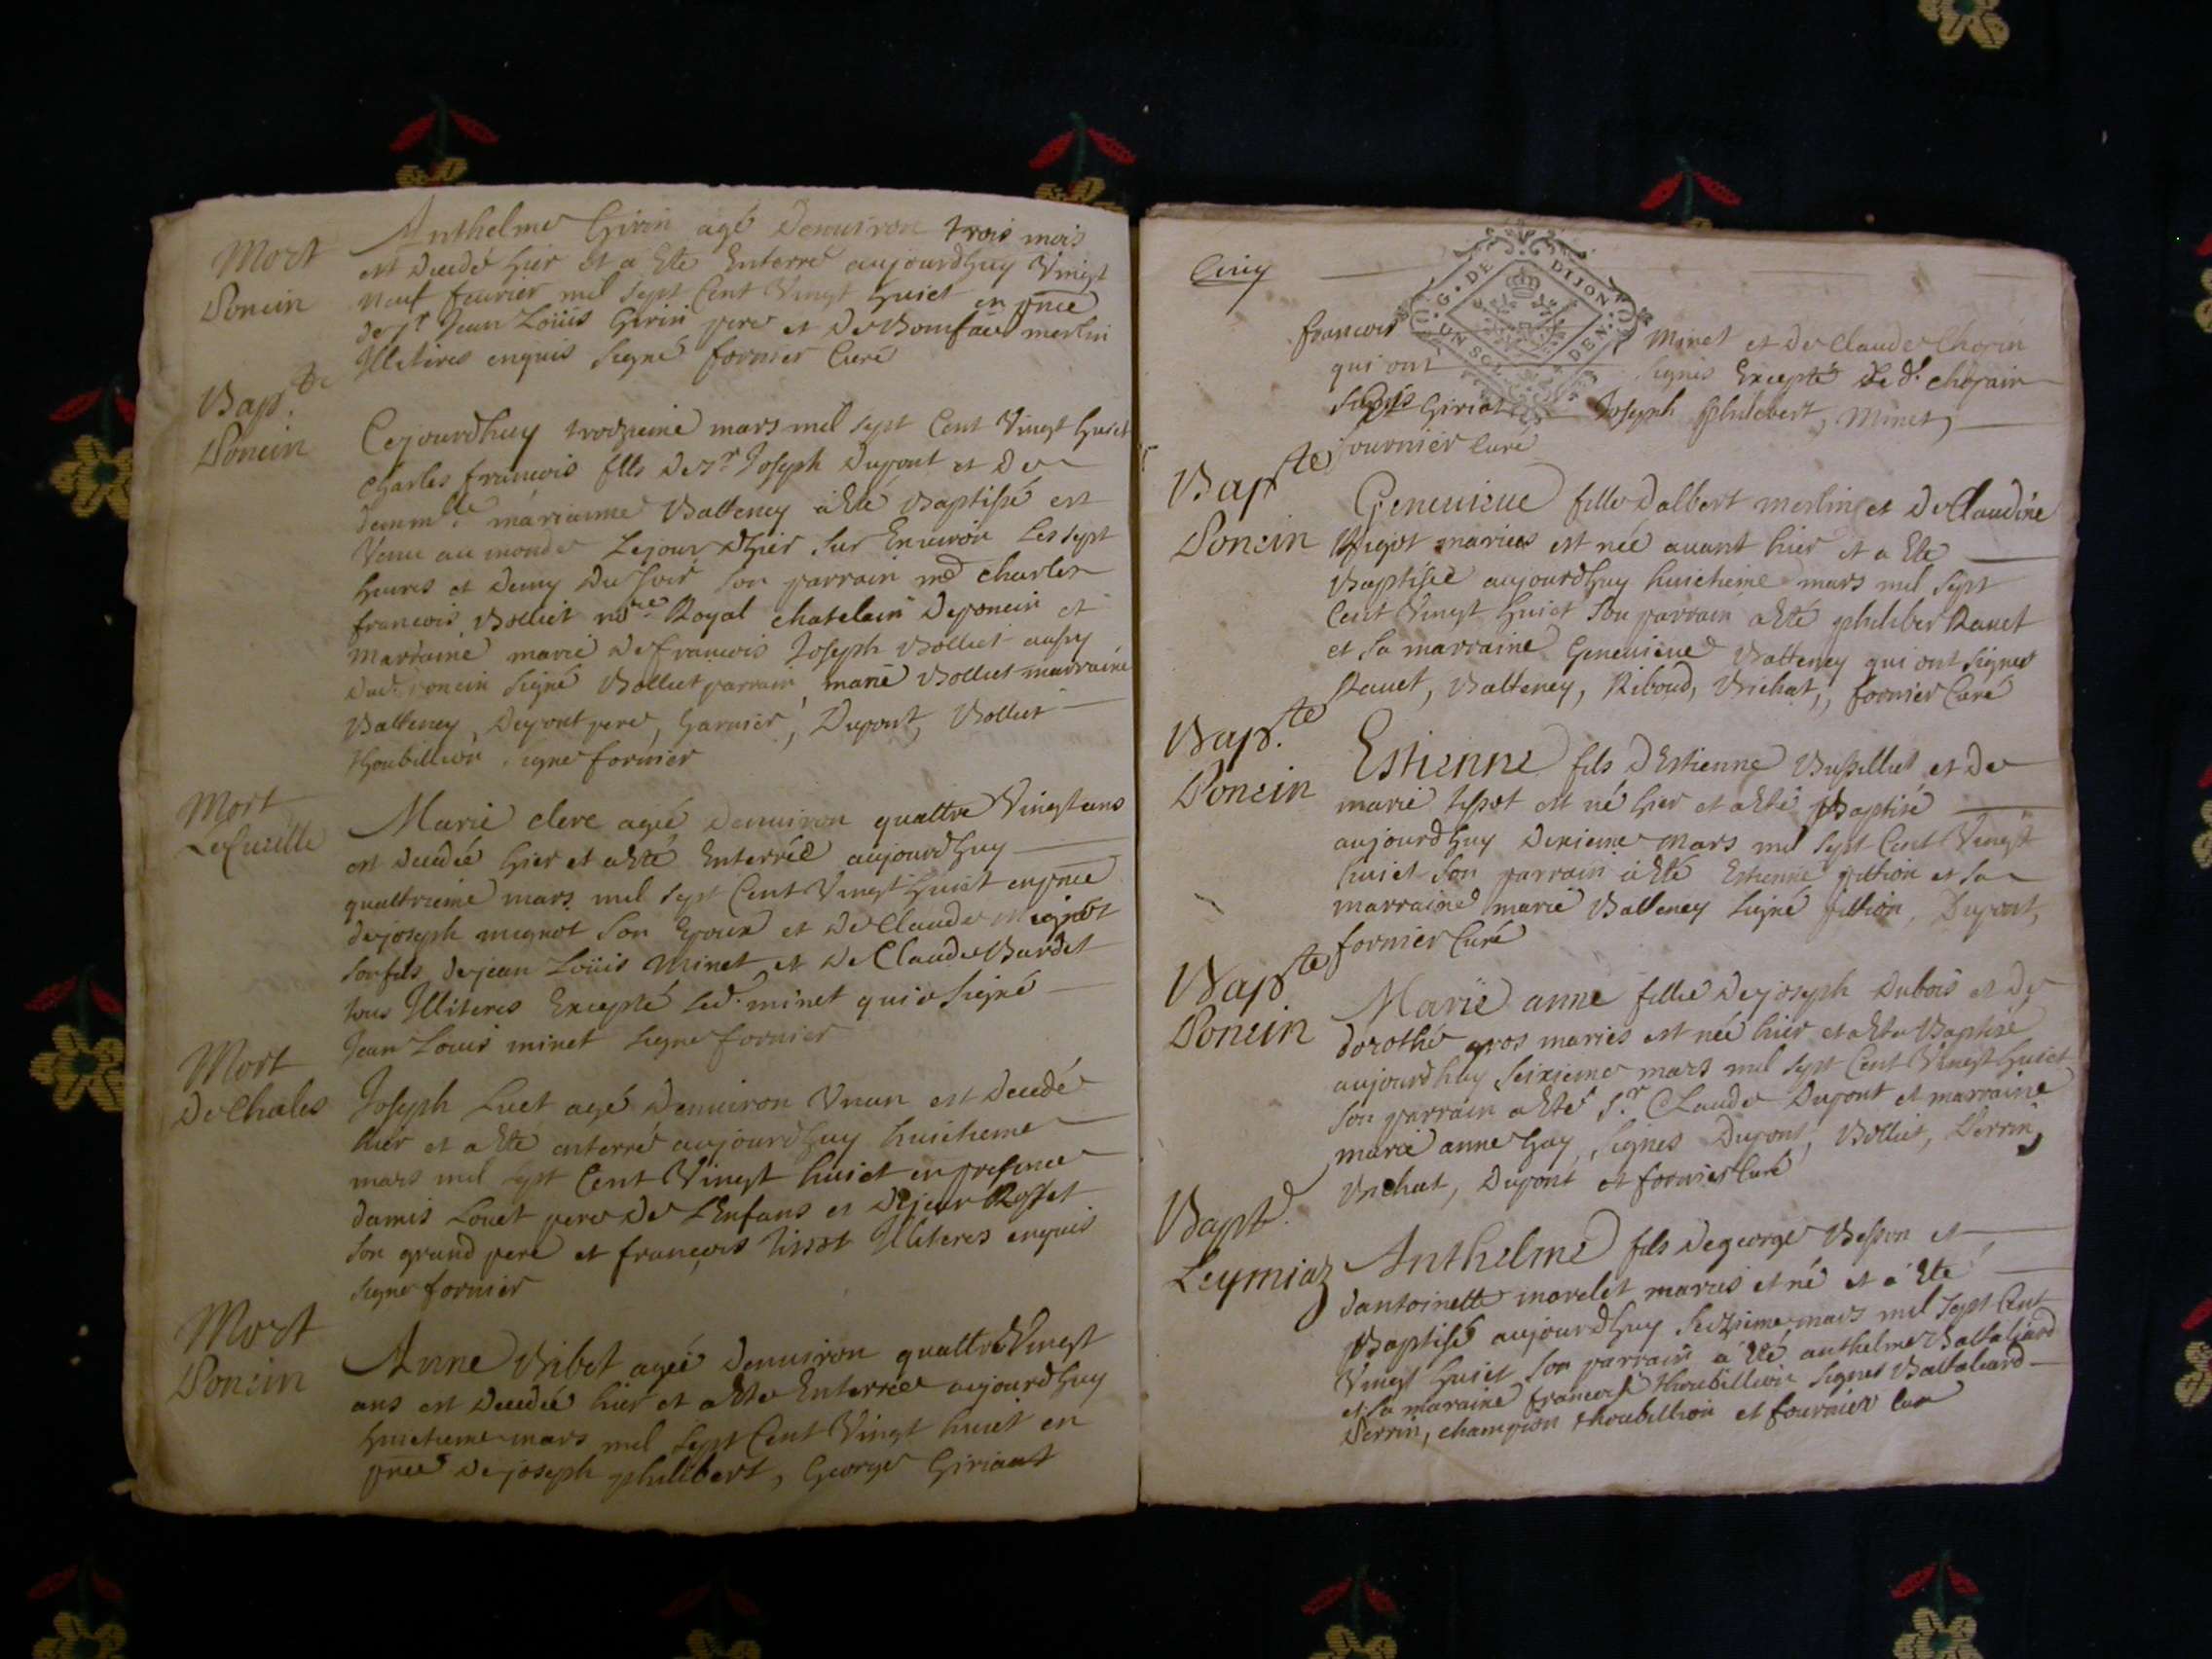 Mort
Poncin
Anthelme Girin agé denuiron trois mois
est decedé hier et a Eté Enterré aujourdhuy Vingt
neuf feurier mil sept Cent Vingt huict en pnce
de Sr Jean Loüis Girin pere et de Boniface merlin
Illiteres enquis signé fornier Curé
Bap.te
Poncin
Cejourdhuy troizieme mars mil sept Cent Vingt huict
charles francois fils de Sr Joseph Dupont et de
damlle marianne Batteney a Eté Baptissé est
Venu au monde Lejour dhier sur Enuiron Les sept
heures et demy du soir son parrain me charles
francois Bolliet nore Royal chatelain deponcin et
marraine marie de francois Joseph Bolliet aussy
dud. poncin signé Bolliet parrain marie Bolliet marraine
Batteney, Dupont pere, Garnier, Dupont, Bolliet
Thoubillion signe fornier
Mort
LeCuzille
Marie clerc agée denuiron quattre Vingt ans
est decedée hier et a Eté Enterrée aujourdhuy
quattrieme mars mil sept Cent Vingt huict en pnce
de joseph mignot son Epoux et de Claude Mignot
son fils de jean Loüis Minet et de Claude Burdet
tous Illiteres Excepté led. minet qui a signé
Jean Louis minet signe fornier
Mort
De Chales
Joseph Luet agé denuiron Vnan est decedé
hier et a Eté enterré aujourdhuy huictieme
mars mil sept Cent Vingt huict en presence
damis Louet pere de LEnfans et de jean Rosset
son grand pere et françois tissot Illiteres enquis
signe fornier
Mort
Poncin
Anne Bibet agée denuiron quattre Vingt
ans est decedée hier et a Eté Enterrée aujourdhuy
huictieme mars mil sept Cent Vingt huict en
pnce de joseph philibert, George Giriaut
Cinq
G. DE DIJON
UN SOL DEN.
francois Minet et de Claude Chopin
qui ont signés Excepté Le d. chopain
Giriat Joseph philibert, Minet,
fournier Curé
Bapte
Poncin
Geneuieue fille dalbert merlin et de Claudine
Bigot maries est née auant hier et a Eté
Baptisée aujourdhuy huictieme mars mil sept
Cent Vingt huict son parrain a Eté philiber Rauet
et sa marraine Geneuieue Batteney qui ont signes
Rauet, Batteney, Riboud, Bichat, fornier Curé
Bap.te
Poncin
Estienne fils dEstienne Bussilliet et de
marie tissot est né hier et a Eté Baptisé
aujourdhuy dixieme mars mil sept Cent Vingt
huict son parrain a Eté Estienne pittion et sa
marraine marie Batteney signé pittion, Dupont,
fornier Curé
Bapte
Poncin
Marie anne fille de joseph Dubois et de
dorothé gros maries est née hier et a Eté Baptisé
aujourdhuy seixieme mars mil sept Cent Vingt huict
son parrain a Eté Sr CLaude Dupont et marraine
marie anne Guy, signes Dupont, Bolliet, Perrin,
Bichat, Dupont et fornier Curé
Bapte.
Leymiaz
Anthelme fils de george Besson et
dantoinette morelet maries et né et a Eté
Baptisé aujourdhuy seizieme mars mil sept Cent
Vingt huict son parrain a Eté anthelme Battaliard
et sa maraine francoise thoubillion signes Battaliard
Perrin, champion thoubillion et fournier Cure